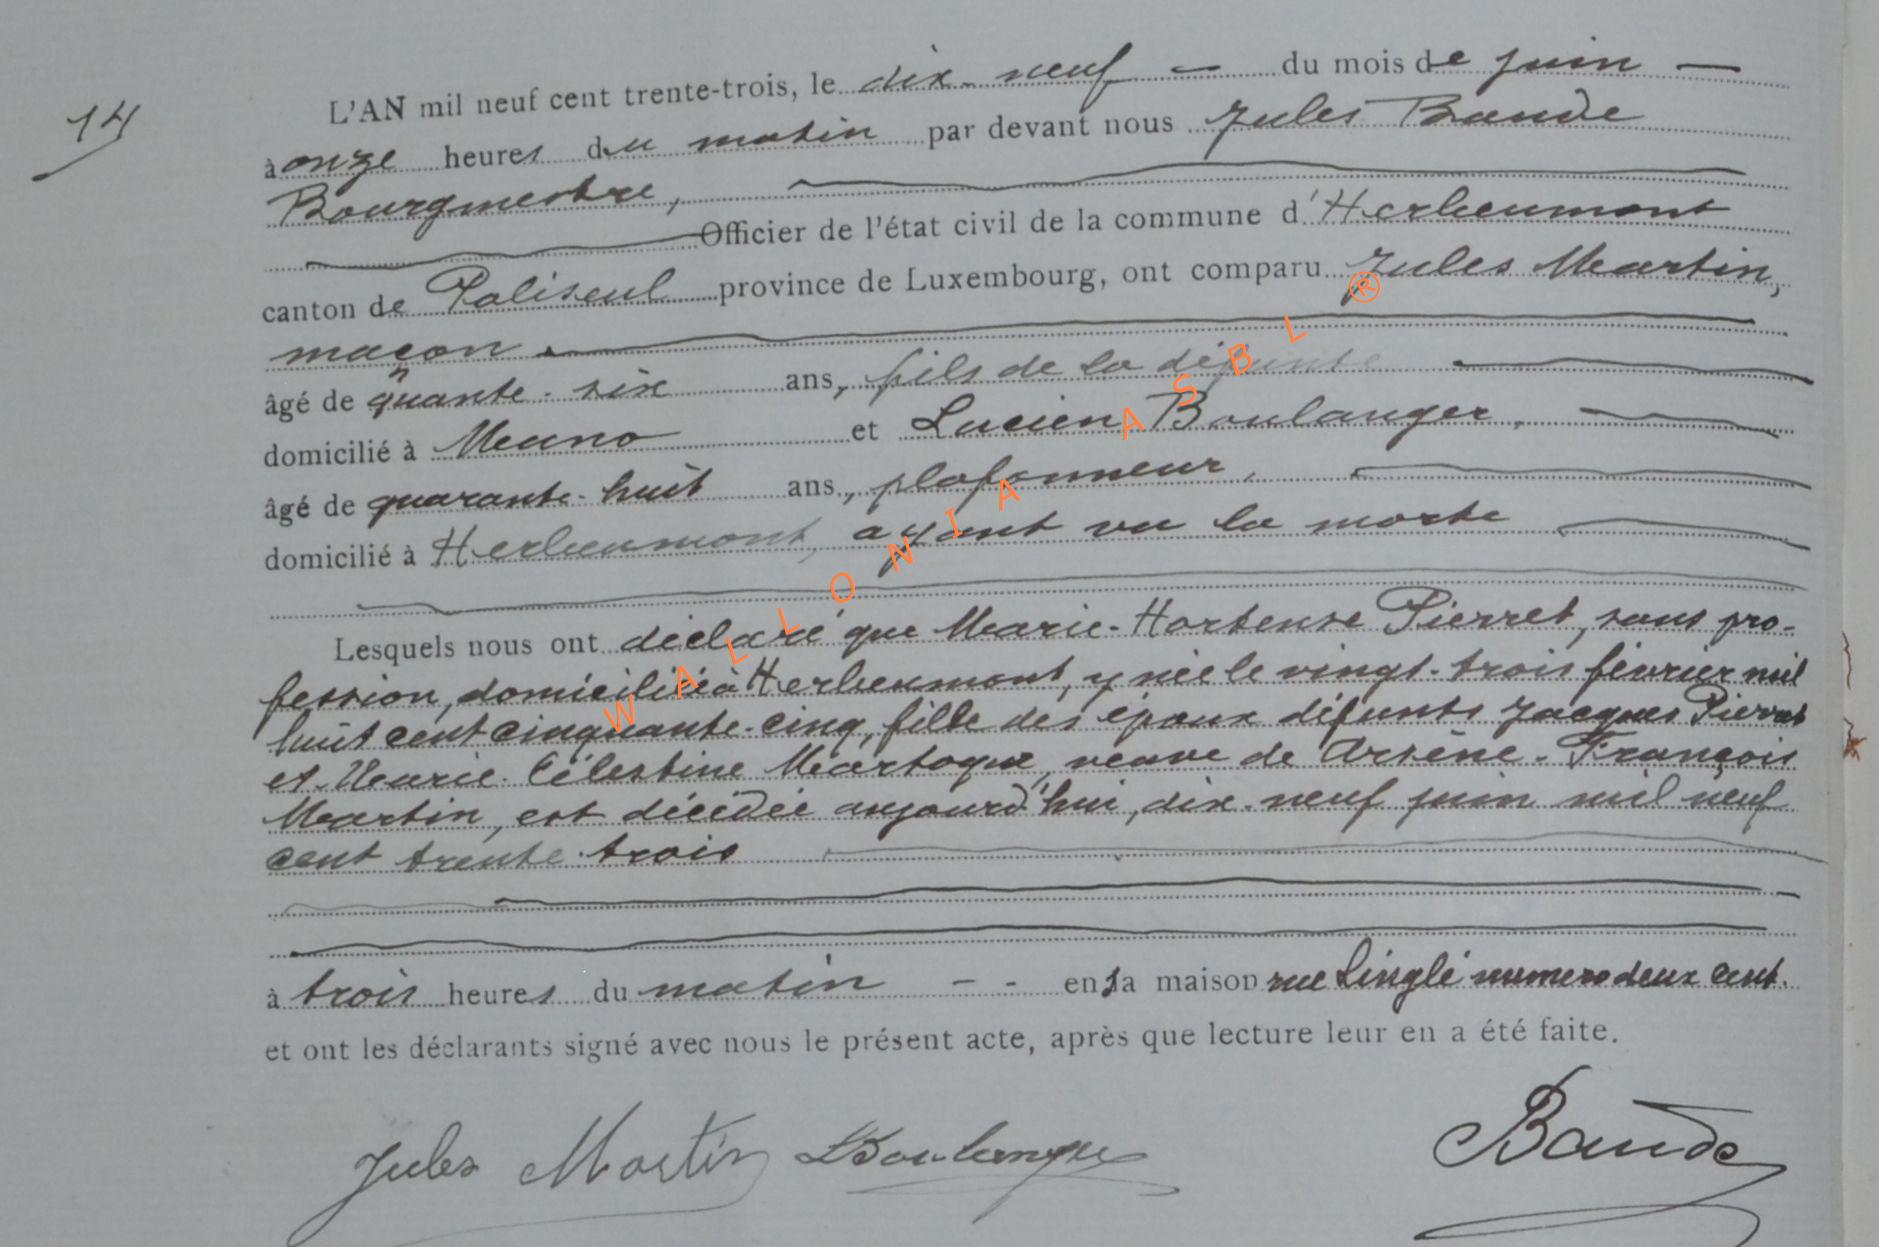 14
L'AN mil neuf cent trente-trois, le dix-neuf du mois de juin
à onze heures du matin par devant nous Jules Baude
Bourgmestre,
Officier de l'état civil de la commune d'Herbeumont
canton de Paliseul province de Luxembourg, ont comparu Jules Martin,
maçon
âgé de quante-six ans, fils de la défunte
domicilié à Muno et Lucien Boulanger,
âgé de quarante-huit ans, plafonneur,
domicilié à Herbeumont, ayant vu la morte
Lesquels nous ont déclaré que Marie-Hortense Pierret, sans pro-
fession, domiciliée à Herbeumont, y née le vingt-trois février mil
huit cent cinquante-cinq, fille des époux défunts Jacques Pierret
et Marie-Célestine veuve de Arsène-François
Martin, est décédée aujourd'hui, dix-neuf juin mil neuf
cent trente-trois
à trois heures du matin - - en sa maison rue Linglé numero deux cent.
et ont les déclarants signé avec nous le présent acte, après que lecture leur en a été faite.
Jules Martin LBoulanger Baude
WALLONIA ASBL ®